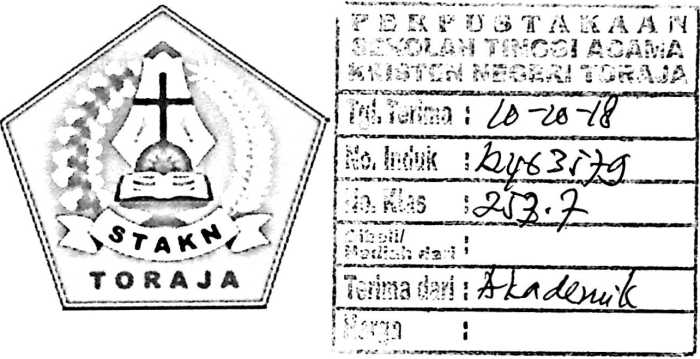 STAKN
TORAJA
PERPUSTAKAAN
SEKOLAH TINGGI AGAMA
KRISTEN NEGERI TORAJA
Tgl. Terima : 10-10-18
No. Induk :
No. Klas : 253.7
Dibeli/
Hadiah dari :
Terima dari : Akademik
Harga :